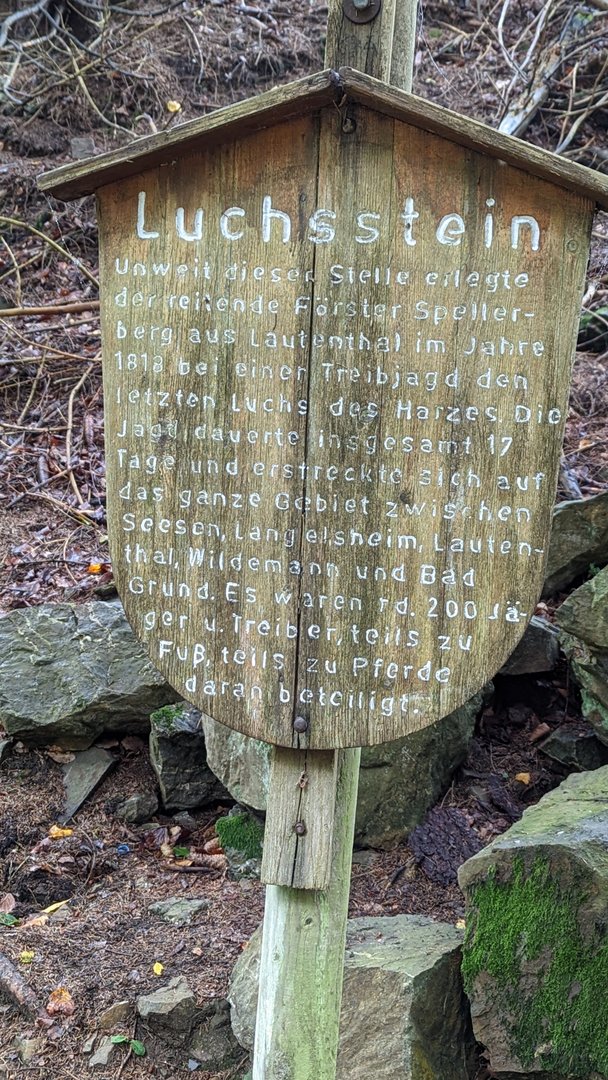 Luchsstein
Unweit dieser Stelle erlegte
der reitende Förster Speller-
berg aus Lautenthal im Jahre
1818 bei einer Treibjagd den
letzten Luchs des Harzes. Die
Jagd dauerte insgesamt 17
Tage und erstreckte sich auf
das ganze Gebiet zwischen
Seesen, Langelsheim, Lauten-
thal, Wildemann und Bad
Grund. Es waren rd. 200 Jä-
ger u. Treiber, teils zu
Fuß, teils zu Pferde
daran beteiligt.